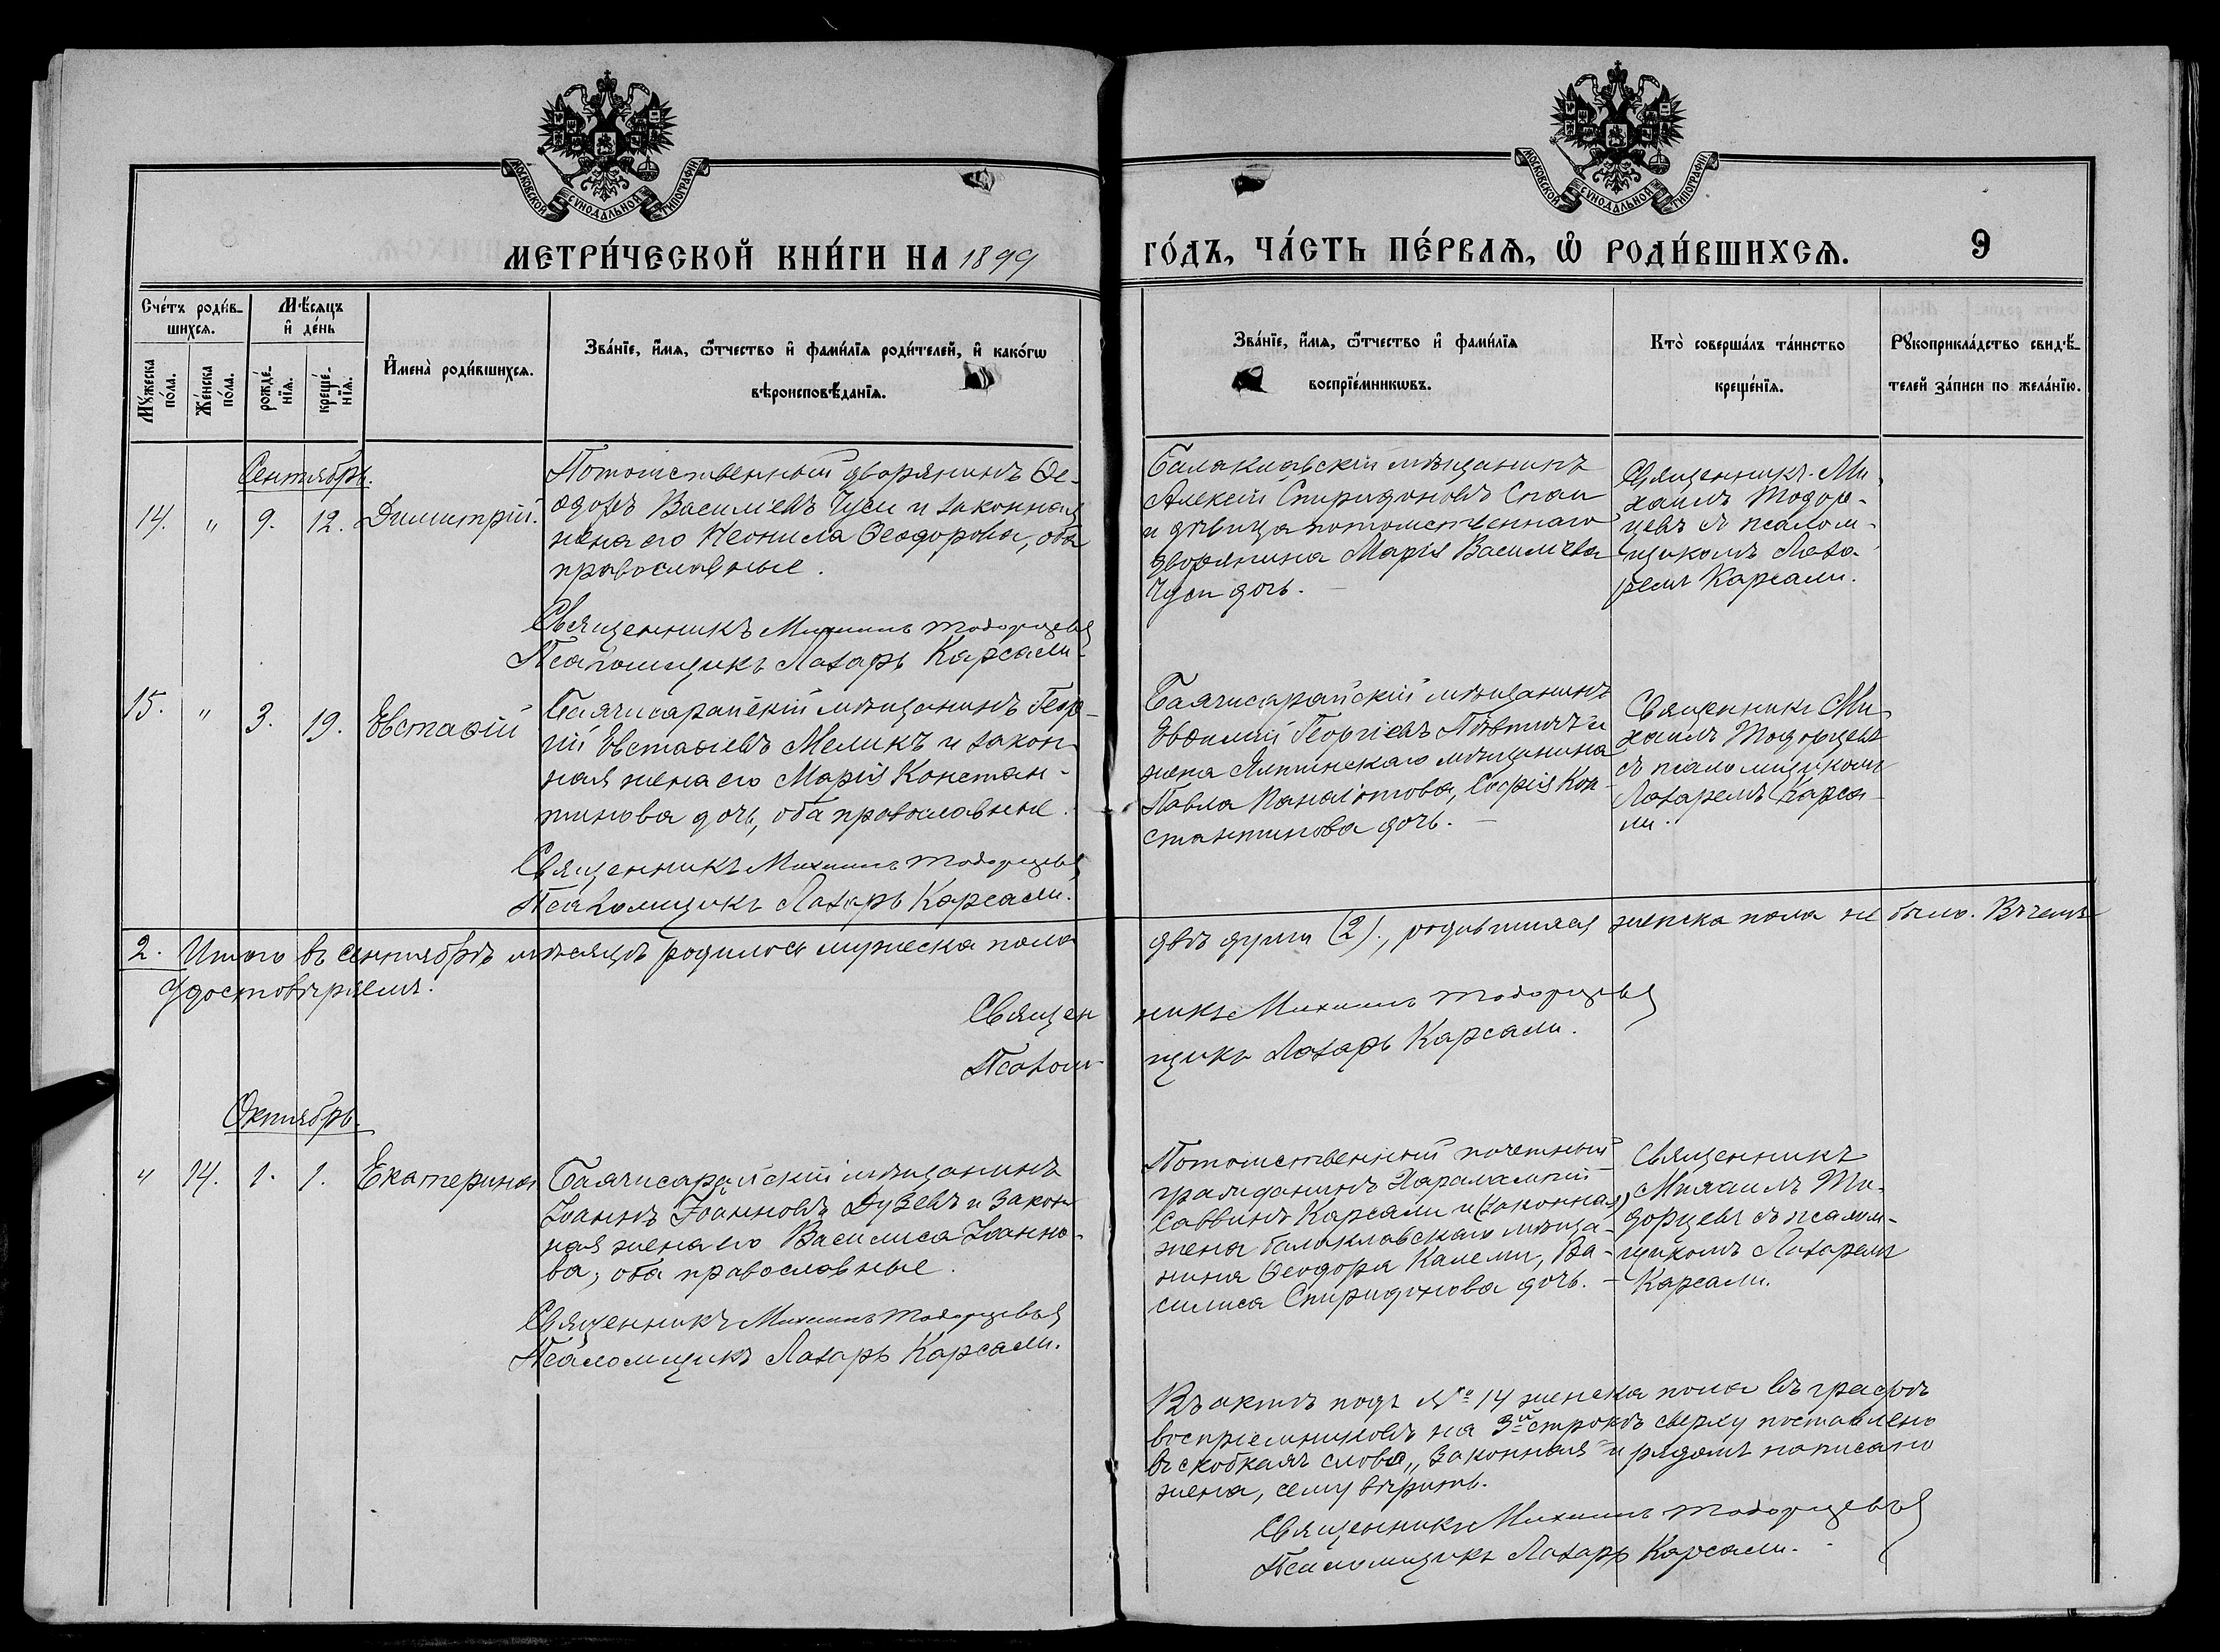 МОСКОВСКОЙ СѴНОДАЛЬНОЙ ТИПОГРАФІИ
МОСКОВСКОЙ СѴНОДАЛЬНОЙ ТИПОГРАФІИ
МЕТРИ́ЧЕСКОЙ КНИ́ГИ НА 1899
ГО́ДЪ, ЧА́СТЬ ПЕ́РВАЯ, Ѡ РОДИ́ВШИХСЯ.
9
Сче́тъ роди́в-
шихся.
Мѣ́сяцъ
и де́нь
Му́жеска
по́ла.
Же́нска
по́ла.
рожде́-
нїя.
креще́-
нїя.
Имена̀ роди́вшихся.
Зва́нїе, и́мя, ѻ҆́тчество и фами́лїя роди́телей, и како́гѡ
вѣроисповѣ́данїя.
Зва́нїе, и́мя, ѻ҆́тчество и фами́лїя
воспрїе́мникѡвъ.
Кто̀ соверша́лъ та́инство
креще́нїя.
Рукоприкла́дство свидѣ́-
телей за́писи по жела́нїю.
Сентябрь.
14. " 9. 12. Димитрій.
Потомственный дворянинъ Ѳе-
одоръ Васильевъ Чуси и законная
жена его Неонила Ѳеодорова, оба
православные.
Священникъ Михаилъ Тодорцевъ
Псаломщикъ Лазарь Карсали.
Балаклавскій мѣщанинъ
Алексій Спиридоновъ Спаи
и дѣвица потомственнаго
дворянина Марія Васильева
Чуси дочь.
Священникъ Ми-
хаилъ Тодор-
цевъ съ псалом-
щикомъ Лаза-
ремъ Карсали.
15. " 3. 19. Евстаѳій
Бахчисарайскій мѣщанинъ Геор-
гій Евстаѳіевъ Меликъ и закон-
ная жена его Марія Констан-
тинова дочь, оба православные.
Священникъ Михаилъ Тодорцевъ
Псаломщикъ Лазарь Карсали.
Бахчисарайскій мѣщанинъ
Евѳимій Георгіевъ и
жена Ялтинскаго мѣщанина
Павла Панаіотова, Софія Кон-
стантинова дочь.
Священникъ Ми-
хаилъ Тодорцевъ
съ псаломщикомъ
Лазаремъ Карса-
ли.
2. Итого въ сентябрѣ мѣсяцѣ родилось мужеска пола двѣ души (2), родившихся женска пола не было. Въ чемъ
удостовѣряемъ.
Священникъ Михаилъ Тодорцевъ
Псаломщикъ Лазарь Карсали.
Октябрь.
" 14. 1. 1. Екатерина
Бахчисарайскій мѣщанинъ
Іоаннъ Іоанновъ Дузевъ и закон-
ная жена его Василиса Іоанно-
ва, оба православные.
Священникъ Михаилъ Тодорцевъ
Псаломщикъ Лазарь Карсали.
Потомственный почетный
гражданинъ Харалампій
Саввинъ Карсали и (законная)
жена балаклавскаго мѣща-
нина Ѳеодора Калеми, Ва-
силиса Спиридонова дочь.
Священникъ
Михаилъ То-
дорцевъ съ псалом-
щикомъ Лазаремъ
Карсали.
Въ актѣ подъ № 14 женска пола въ графѣ
воспріемниковъ на 3й строкѣ сверху поставлено
въ скобкахъ слово „законная" и рядомъ написано
жена, сему вѣрить.
Священникъ Михаилъ Тодорцевъ
Псаломщикъ Лазарь Карсали.